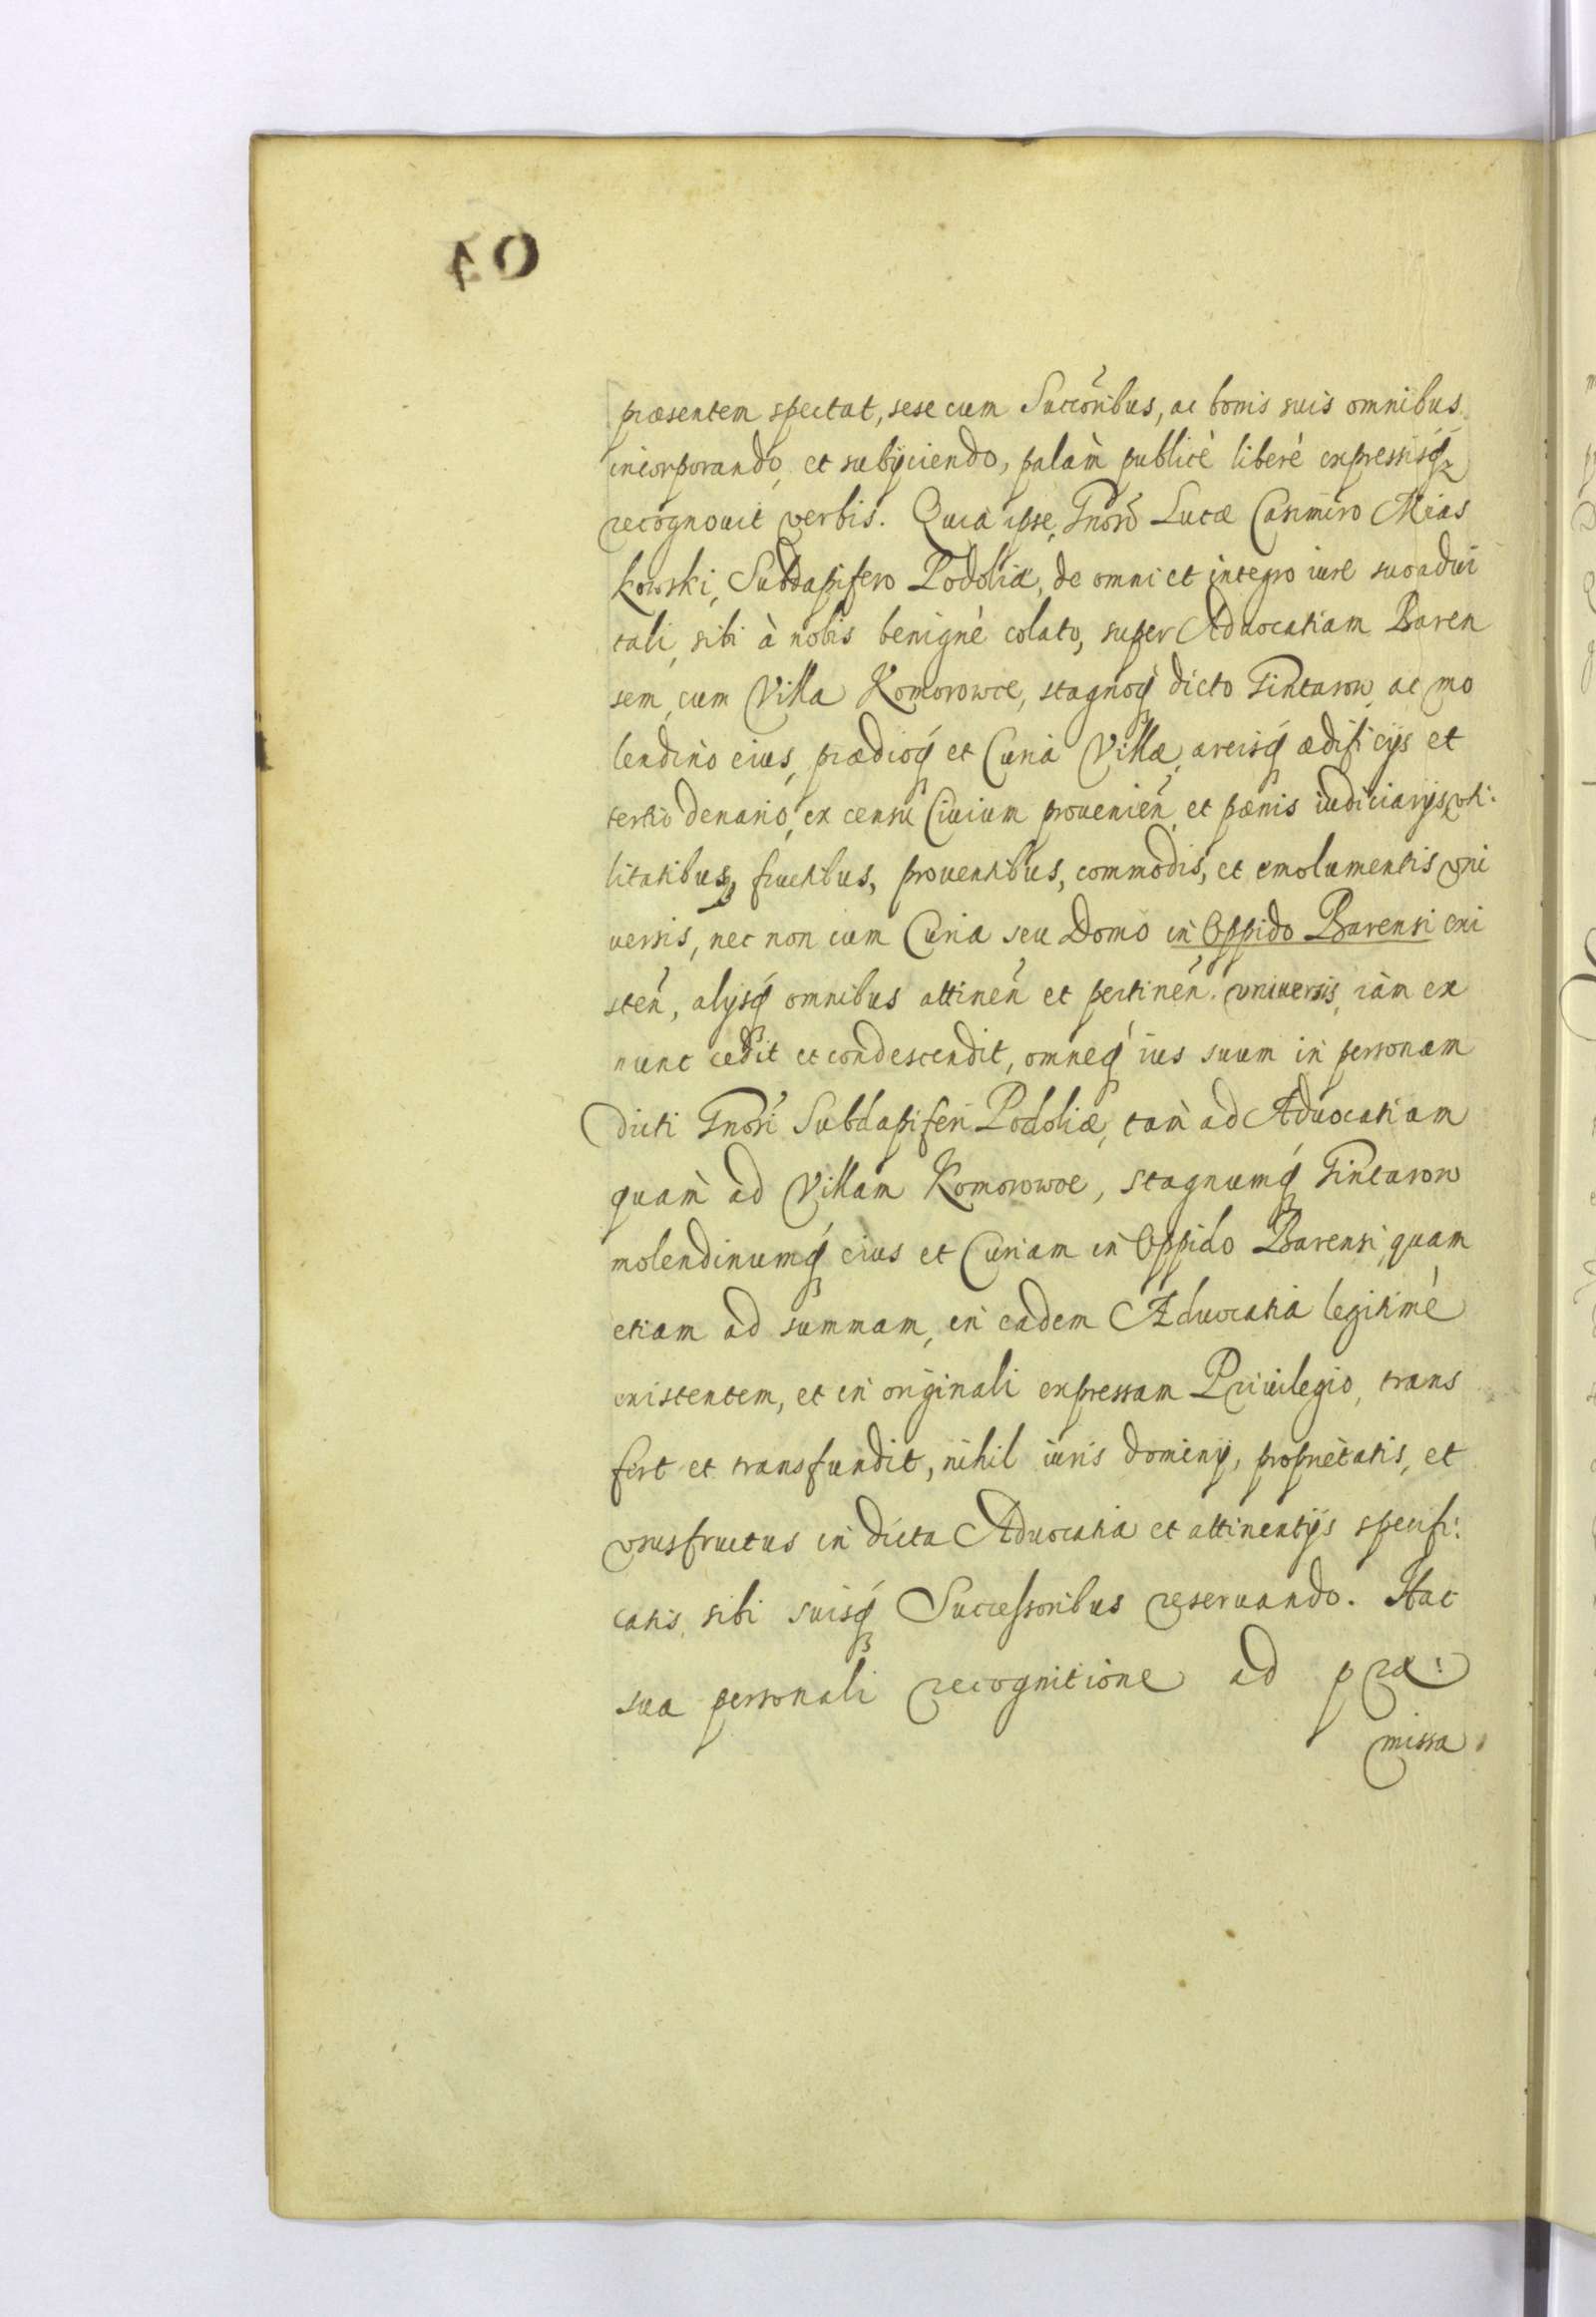 præsentem spectat, sese cum Succoribus, ac bonis suis omnibus
incorporando, et subijciendo, palàm publicè liberè expressisq
recognouit verbis. Quia ipse, Gnoso Lucæ Casimiro Mias
kowski, Subdapifero Podoliæ, de omni et integro iure suo adui
tali, sibi à nobis benignè colato, super Aduocatiam Baren
sem, cum Villa Komorowce, stagnoq dicto Tintarow, ac mo
lendino eius, prædioq et Curia Villæ, areisq ædificijs et
tertio denario, ex censu Ciuium prouenien, et pænis iudiciarijs vti:
litatibus, fructibus, prouentibus, commodis, et emolumentis vni
uersis, nec non cum Curia seu Domo in Oppido Barensi exi
sten, alijsq omnibus attinen et pertinen. vniuersis, iàm ex
nunc cedit et condescendit, omneq ius suum in personam
dicti Gnosi Subdapiferi Podoliæ, tam ad Aduocatiam
quàm ad Villam Komorowce, stagnumq Tintarow
molendinumq eius et Curiam in Oppido Barensi, quam
etiam ad summam, in eadem Aduocatia legitimè
existentem, et in originali expressam Priuilegio, trans
fert et transfundit, nihil iuris dominij, proprietatis, et
vsusfructus in dicta Aduocatia et attinentijs specifi:
catis, sibi suisq Successoribus reseruando. Hac
sua personali recognitione ad præ:
missa